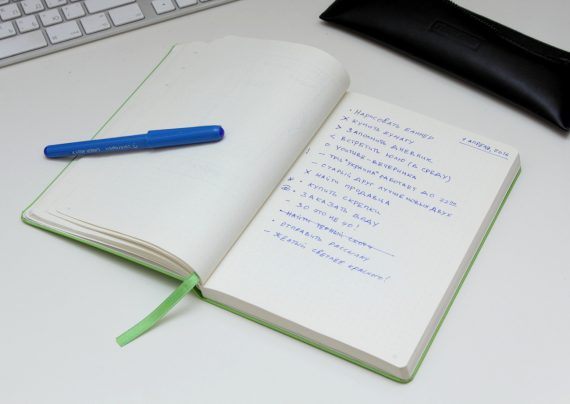 1 АПРЕЛЯ, 2016
· НАРИСОВАТЬ БАННЕР
× КУПИТЬ БУМАГУ
> ЗАПОЛНИТЬ ДНЕВНИК
< ВСТРЕТИТЬ ЮЛЮ (В СРЕДУ)
О YOUTUBE-ВЕЧЕРИНКА
! - ТРЦ "УКРАИНА" РАБОТАЕТ ДО 22:00
- СТАРЫЙ ДРУГ ЛУЧШЕ НОВЫХ ДВУХ
× НАЙТИ ПРОДАВЦА
* · КУПИТЬ СКРЕПКИ
@ · ЗАКАЗАТЬ ВОДУ
- 30 ЭТО НЕ 40!
· НАЙТИ ЧЕРНЫЙ СКОТЧ
· ОТПРАВИТЬ РАССЫЛКУ
- ЖЕЛТЫЙ СВЕТЛЕЕ КРАСНОГО!